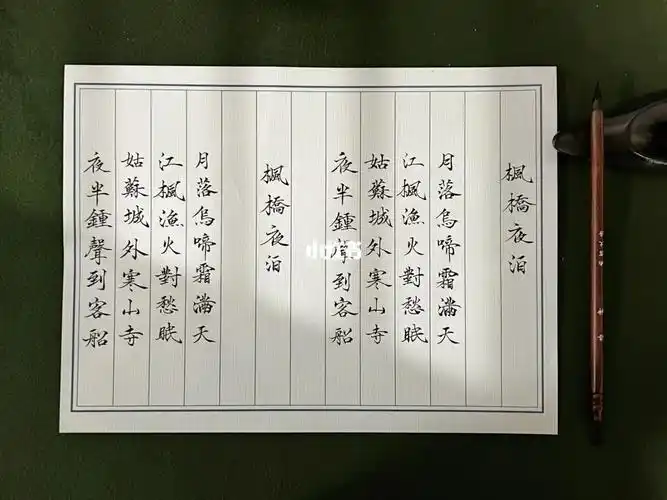 楓橋夜泊
月落烏啼霜滿天
江楓漁火對愁眠
姑蘇城外寒山寺
夜半鍾聲到客船
楓橋夜泊
月落烏啼霜滿天
江楓漁火對愁眠
姑蘇城外寒山寺
夜半鍾聲到客船
小红书